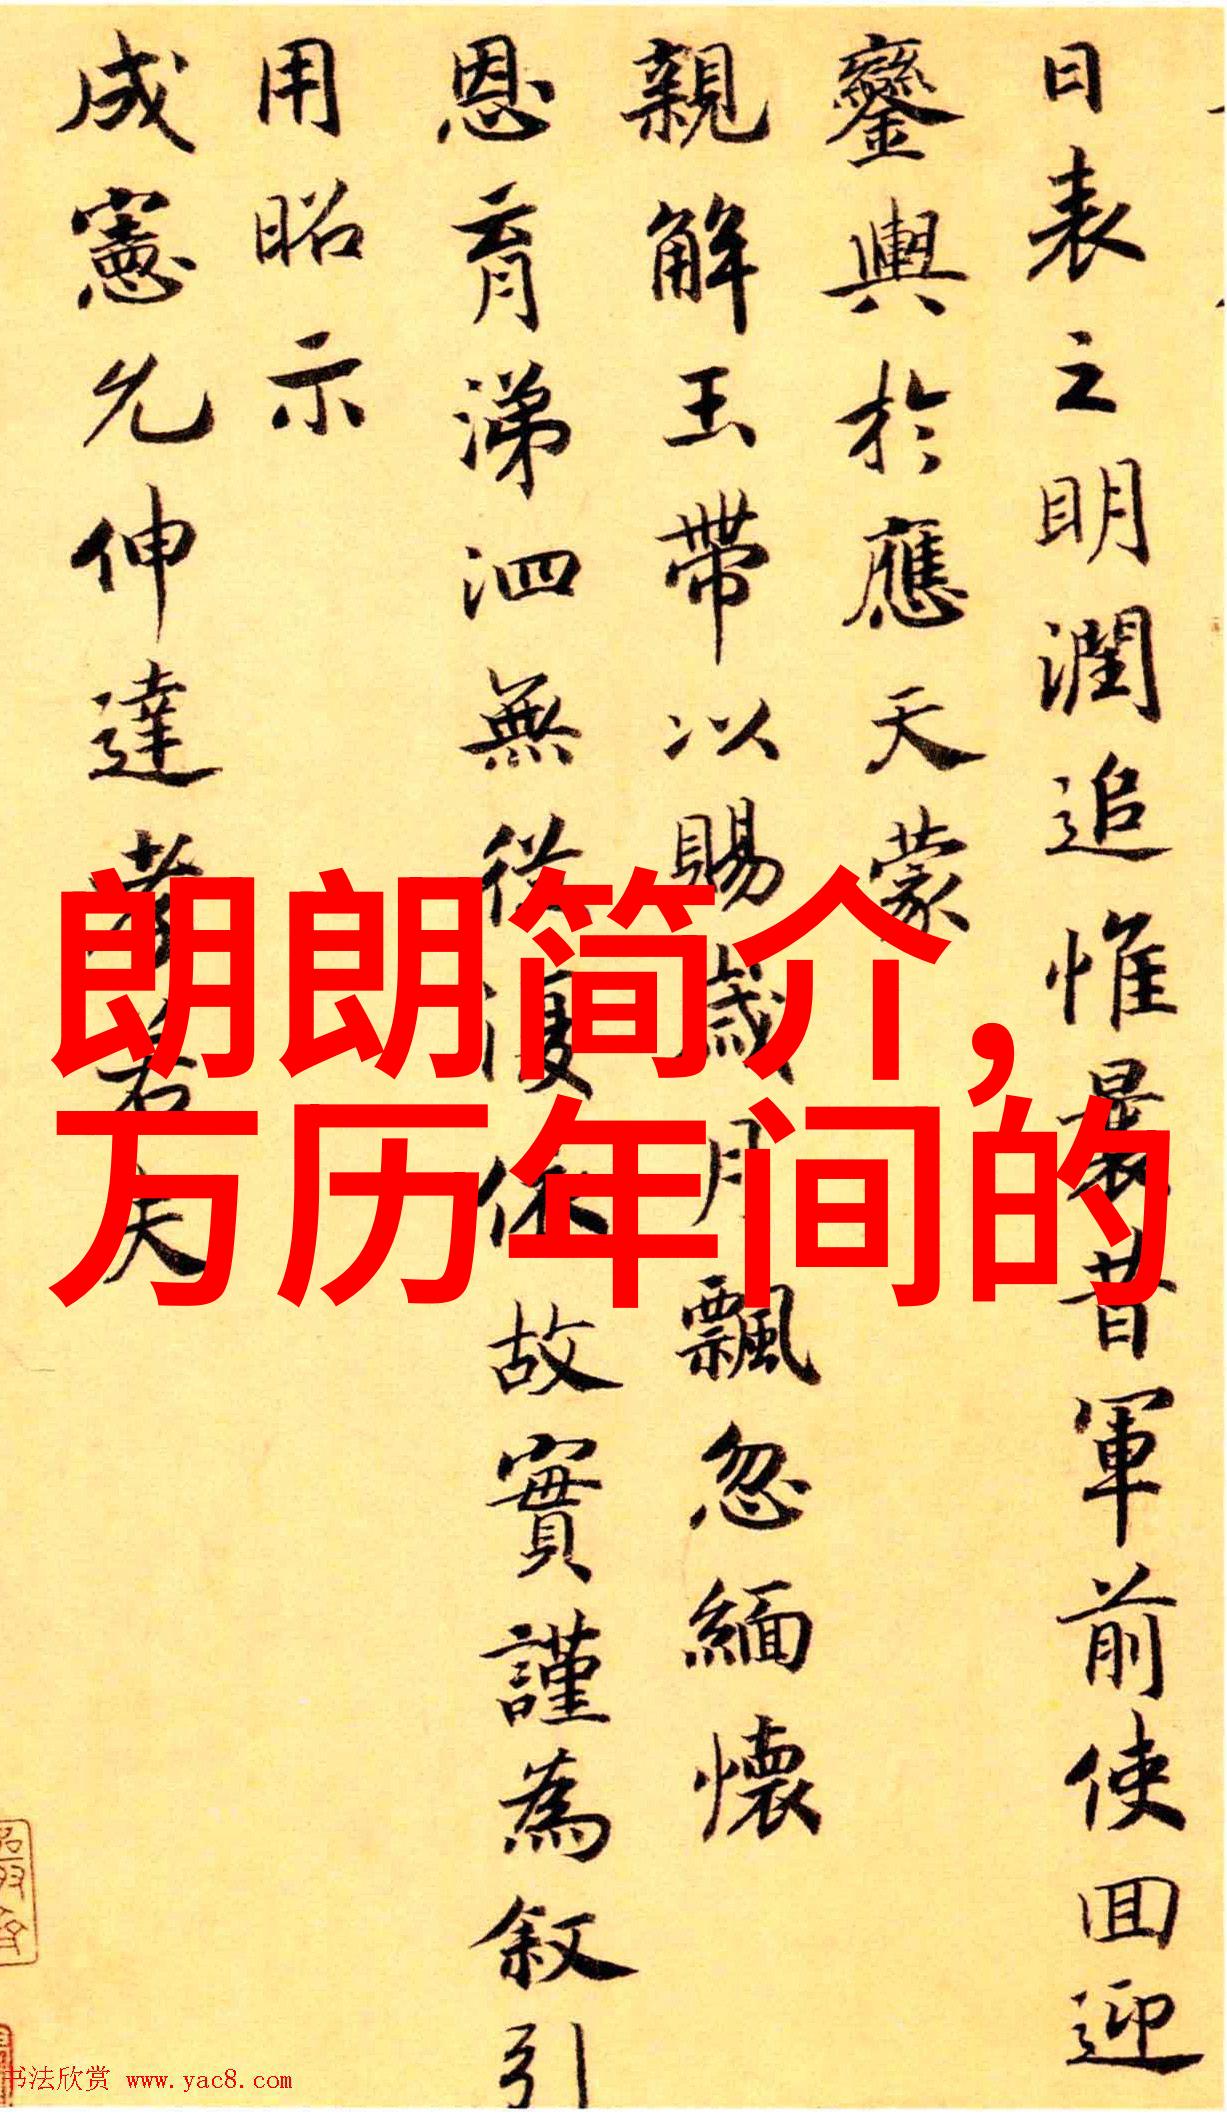 日表之明潤追惟曩昔軍前使回迎
鑾輿於應天蒙
親解玉帶以賜歲月飄忽緬懷
恩育涕泗無從復依故實謹為叙引
用昭示
成憲允伸達孝若夫
朗朗简介，
万历年间的
书法欣赏 www.yac8.com